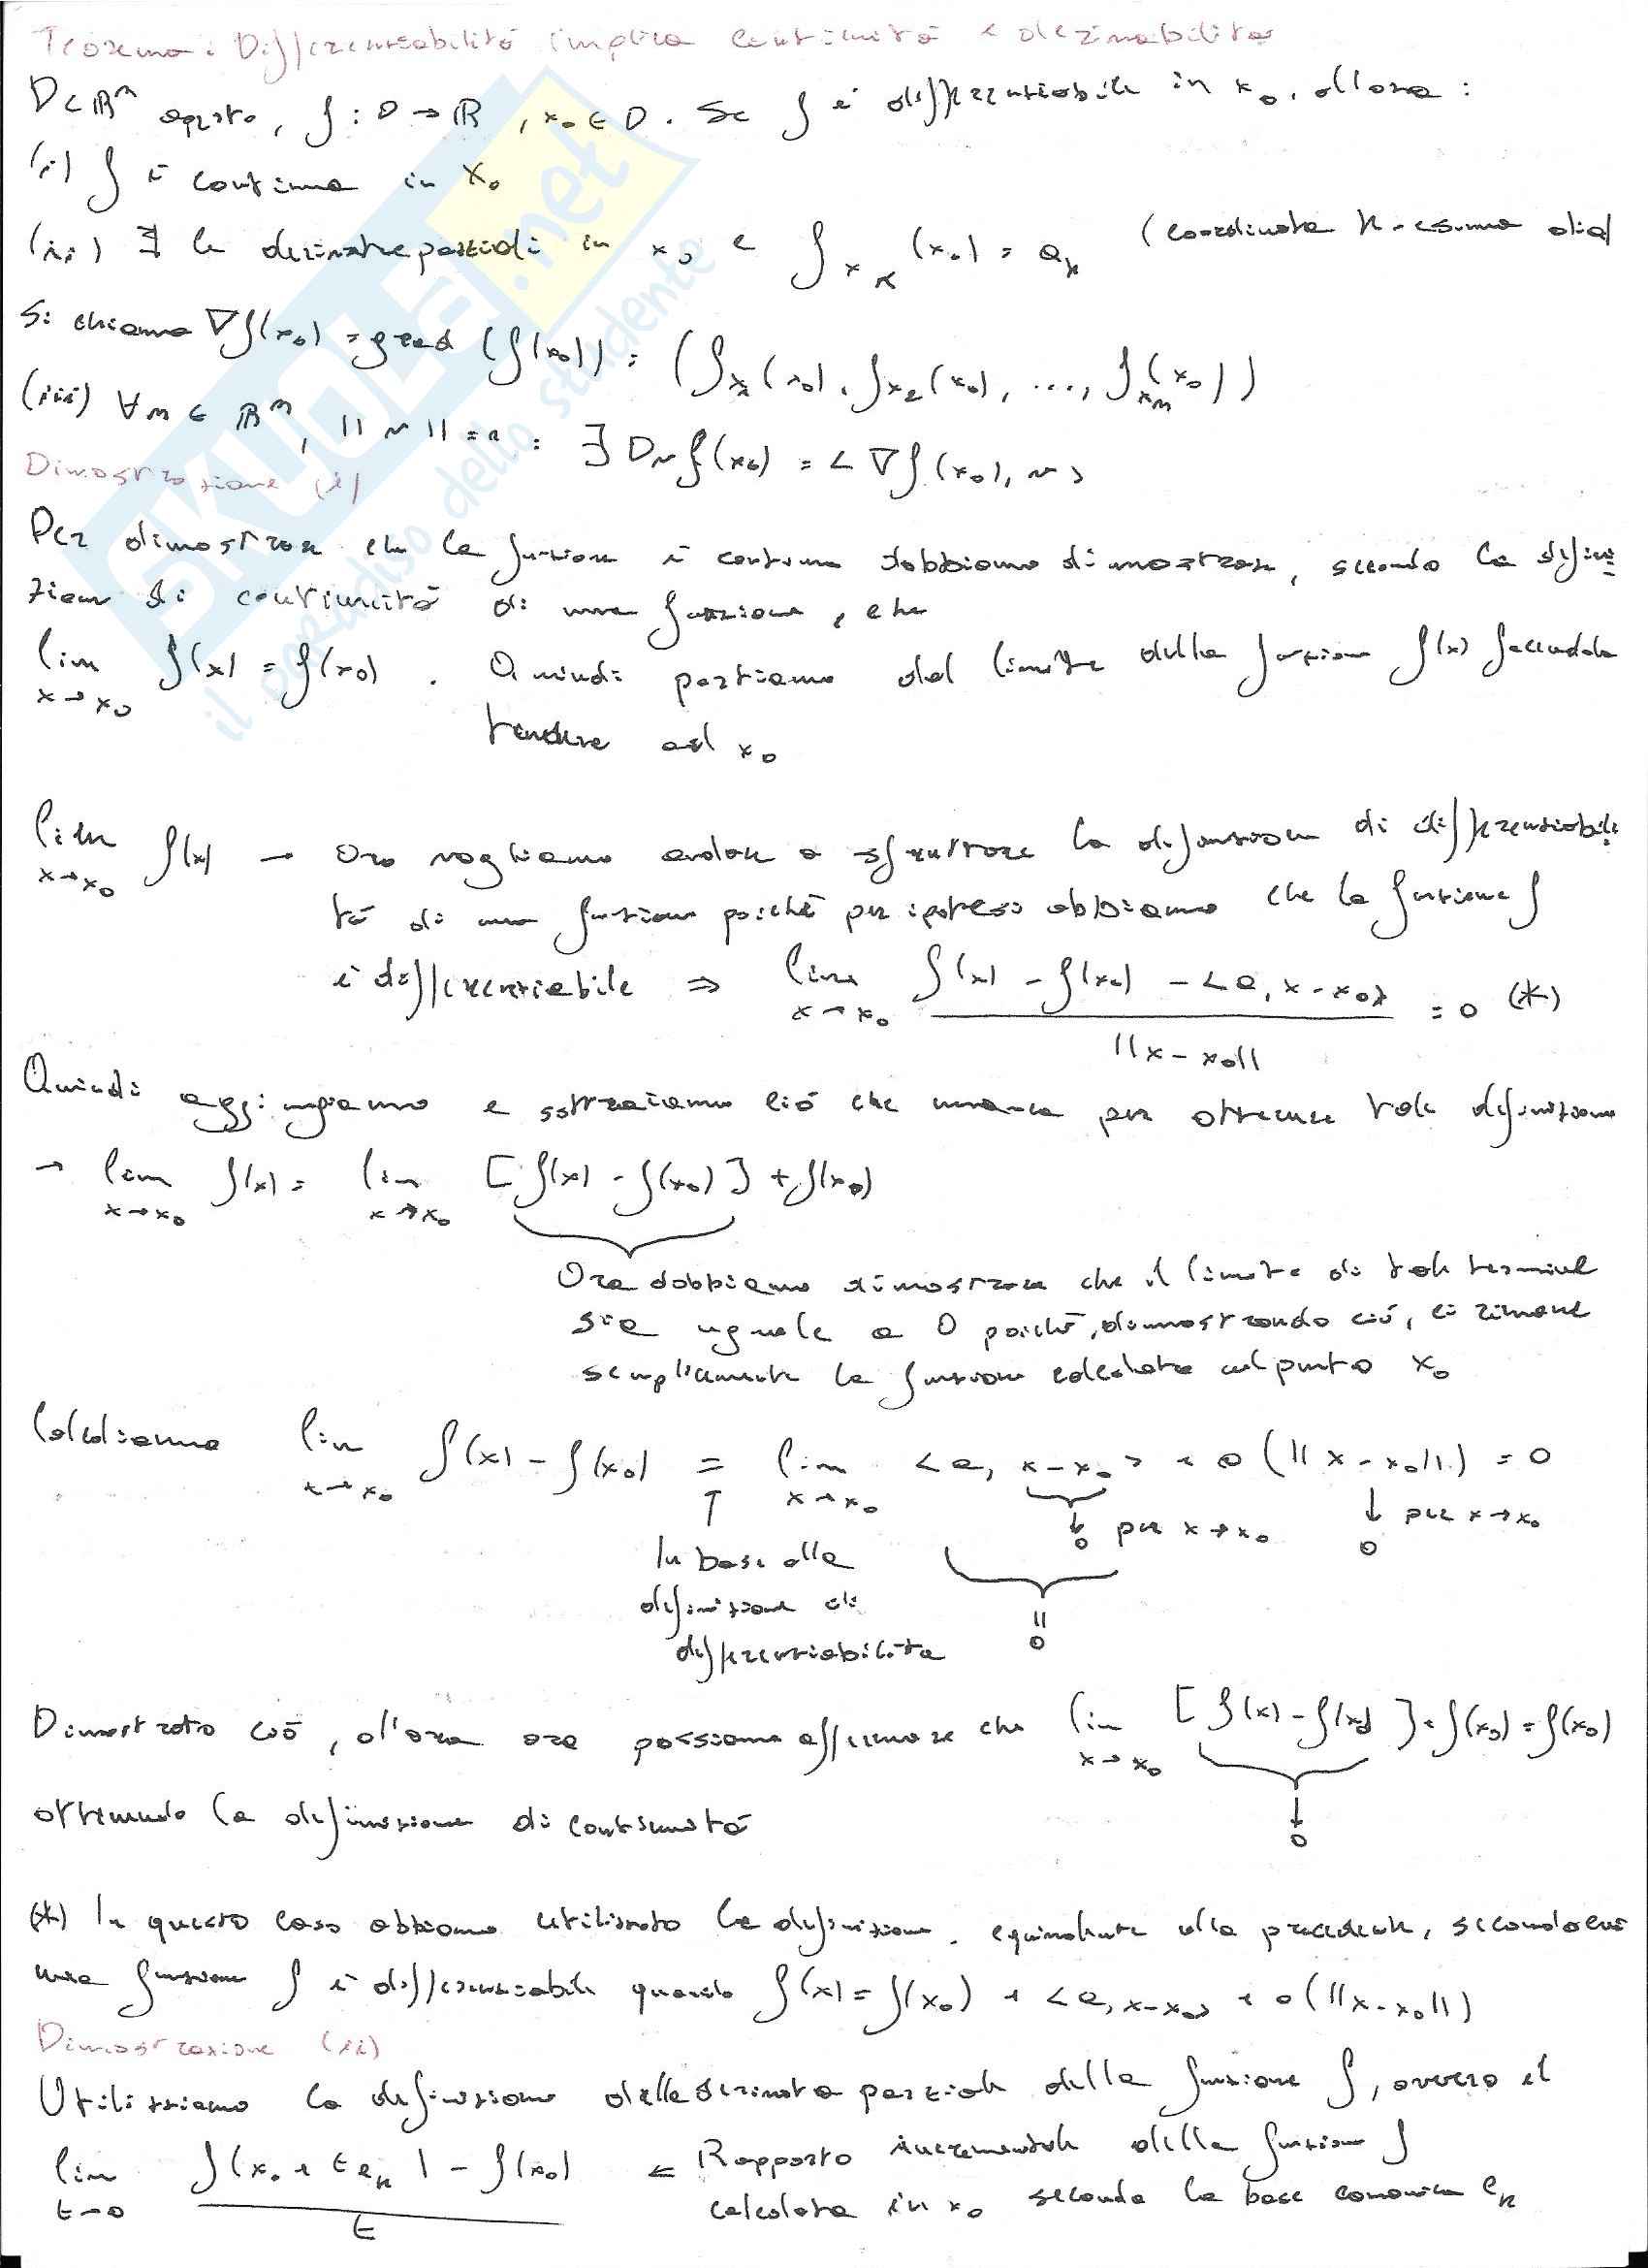 Teorema: Differenziabilità implica continuità e derivabilità
D⊂ℝⁿ aperto, f: D→ℝ, x₀∈D. Se f è differenziabile in x₀, allora:
(i) f è continua in x₀
(ii) ∃ le derivate parziali in x₀ e f_{x_k}(x₀) = a_k (coordinata k-esima di a)
Si chiama ∇f(x₀) = grad(f(x₀)) = (f_{x_1}(x₀), f_{x_2}(x₀), ..., f_{x_n}(x₀))
(iii) ∀ v ∈ ℝⁿ, ||v|| = 1 : ∃ D_v f(x₀) = <∇f(x₀), v>
Dimostrazione (i)
Per dimostrare che la funzione è continua dobbiamo dimostrare, secondo la defini
zione di continuità di una funzione, che
lim_{x→x₀} f(x) = f(x₀). Quindi partiamo dal limite della funzione f(x) facendola
tendere ad x₀
lim_{x→x₀} f(x) → Ora vogliamo andare a sfruttare la definizione di differenziabili
tà di una funzione poiché per ipotesi abbiamo che la funzione f
è differenziabile ⇒ lim_{x→x₀} (f(x) - f(x₀) - <a, x-x₀>) / ||x-x₀|| = 0 (*)
Quindi aggiungiamo e sottraiamo ciò che manca per ottenere tale definizione
→ lim_{x→x₀} f(x) = lim_{x→x₀} [f(x) - f(x₀)] + f(x₀)
Ora dobbiamo dimostrare che il limite di tale termine
sia uguale a 0 poiché, dimostrando ciò, ci rimane
semplicemente la funzione calcolata nel punto x₀
Calcoliamo lim_{x→x₀} f(x) - f(x₀) = lim_{x→x₀} <a, x-x₀> + o(||x-x₀||) = 0
↑ ↓ 0 per x→x₀ ↓ 0 per x→x₀
In base alla
definizione di
differenziabilità
= 0
Dimostrato ciò, allora ora possiamo affermare che lim_{x→x₀} [f(x) - f(x₀)] + f(x₀) = f(x₀)
↓ 0
ottenendo la definizione di continuità
(*) In questo caso abbiamo utilizzato la definizione, equivalente alla precedente, secondo cui
una funzione f è differenziabile quando f(x) = f(x₀) + <a, x-x₀> + o(||x-x₀||)
Dimostrazione (ii)
Utilizziamo la definizione della derivata parziale della funzione f, ovvero il
lim_{t→0} (f(x₀ + t e_k) - f(x₀)) / t ← Rapporto incrementale della funzione f
calcolata in x₀ secondo la base canonica e_k
SKUOLA.net
il paradiso dello studente